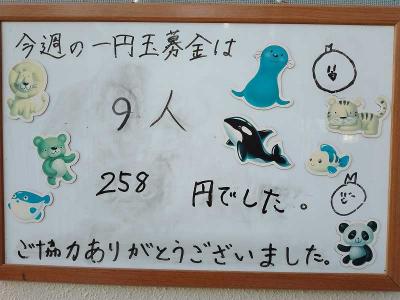 今週の一円玉募金は
9人
258 円でした。
ご協力ありがとうございました。